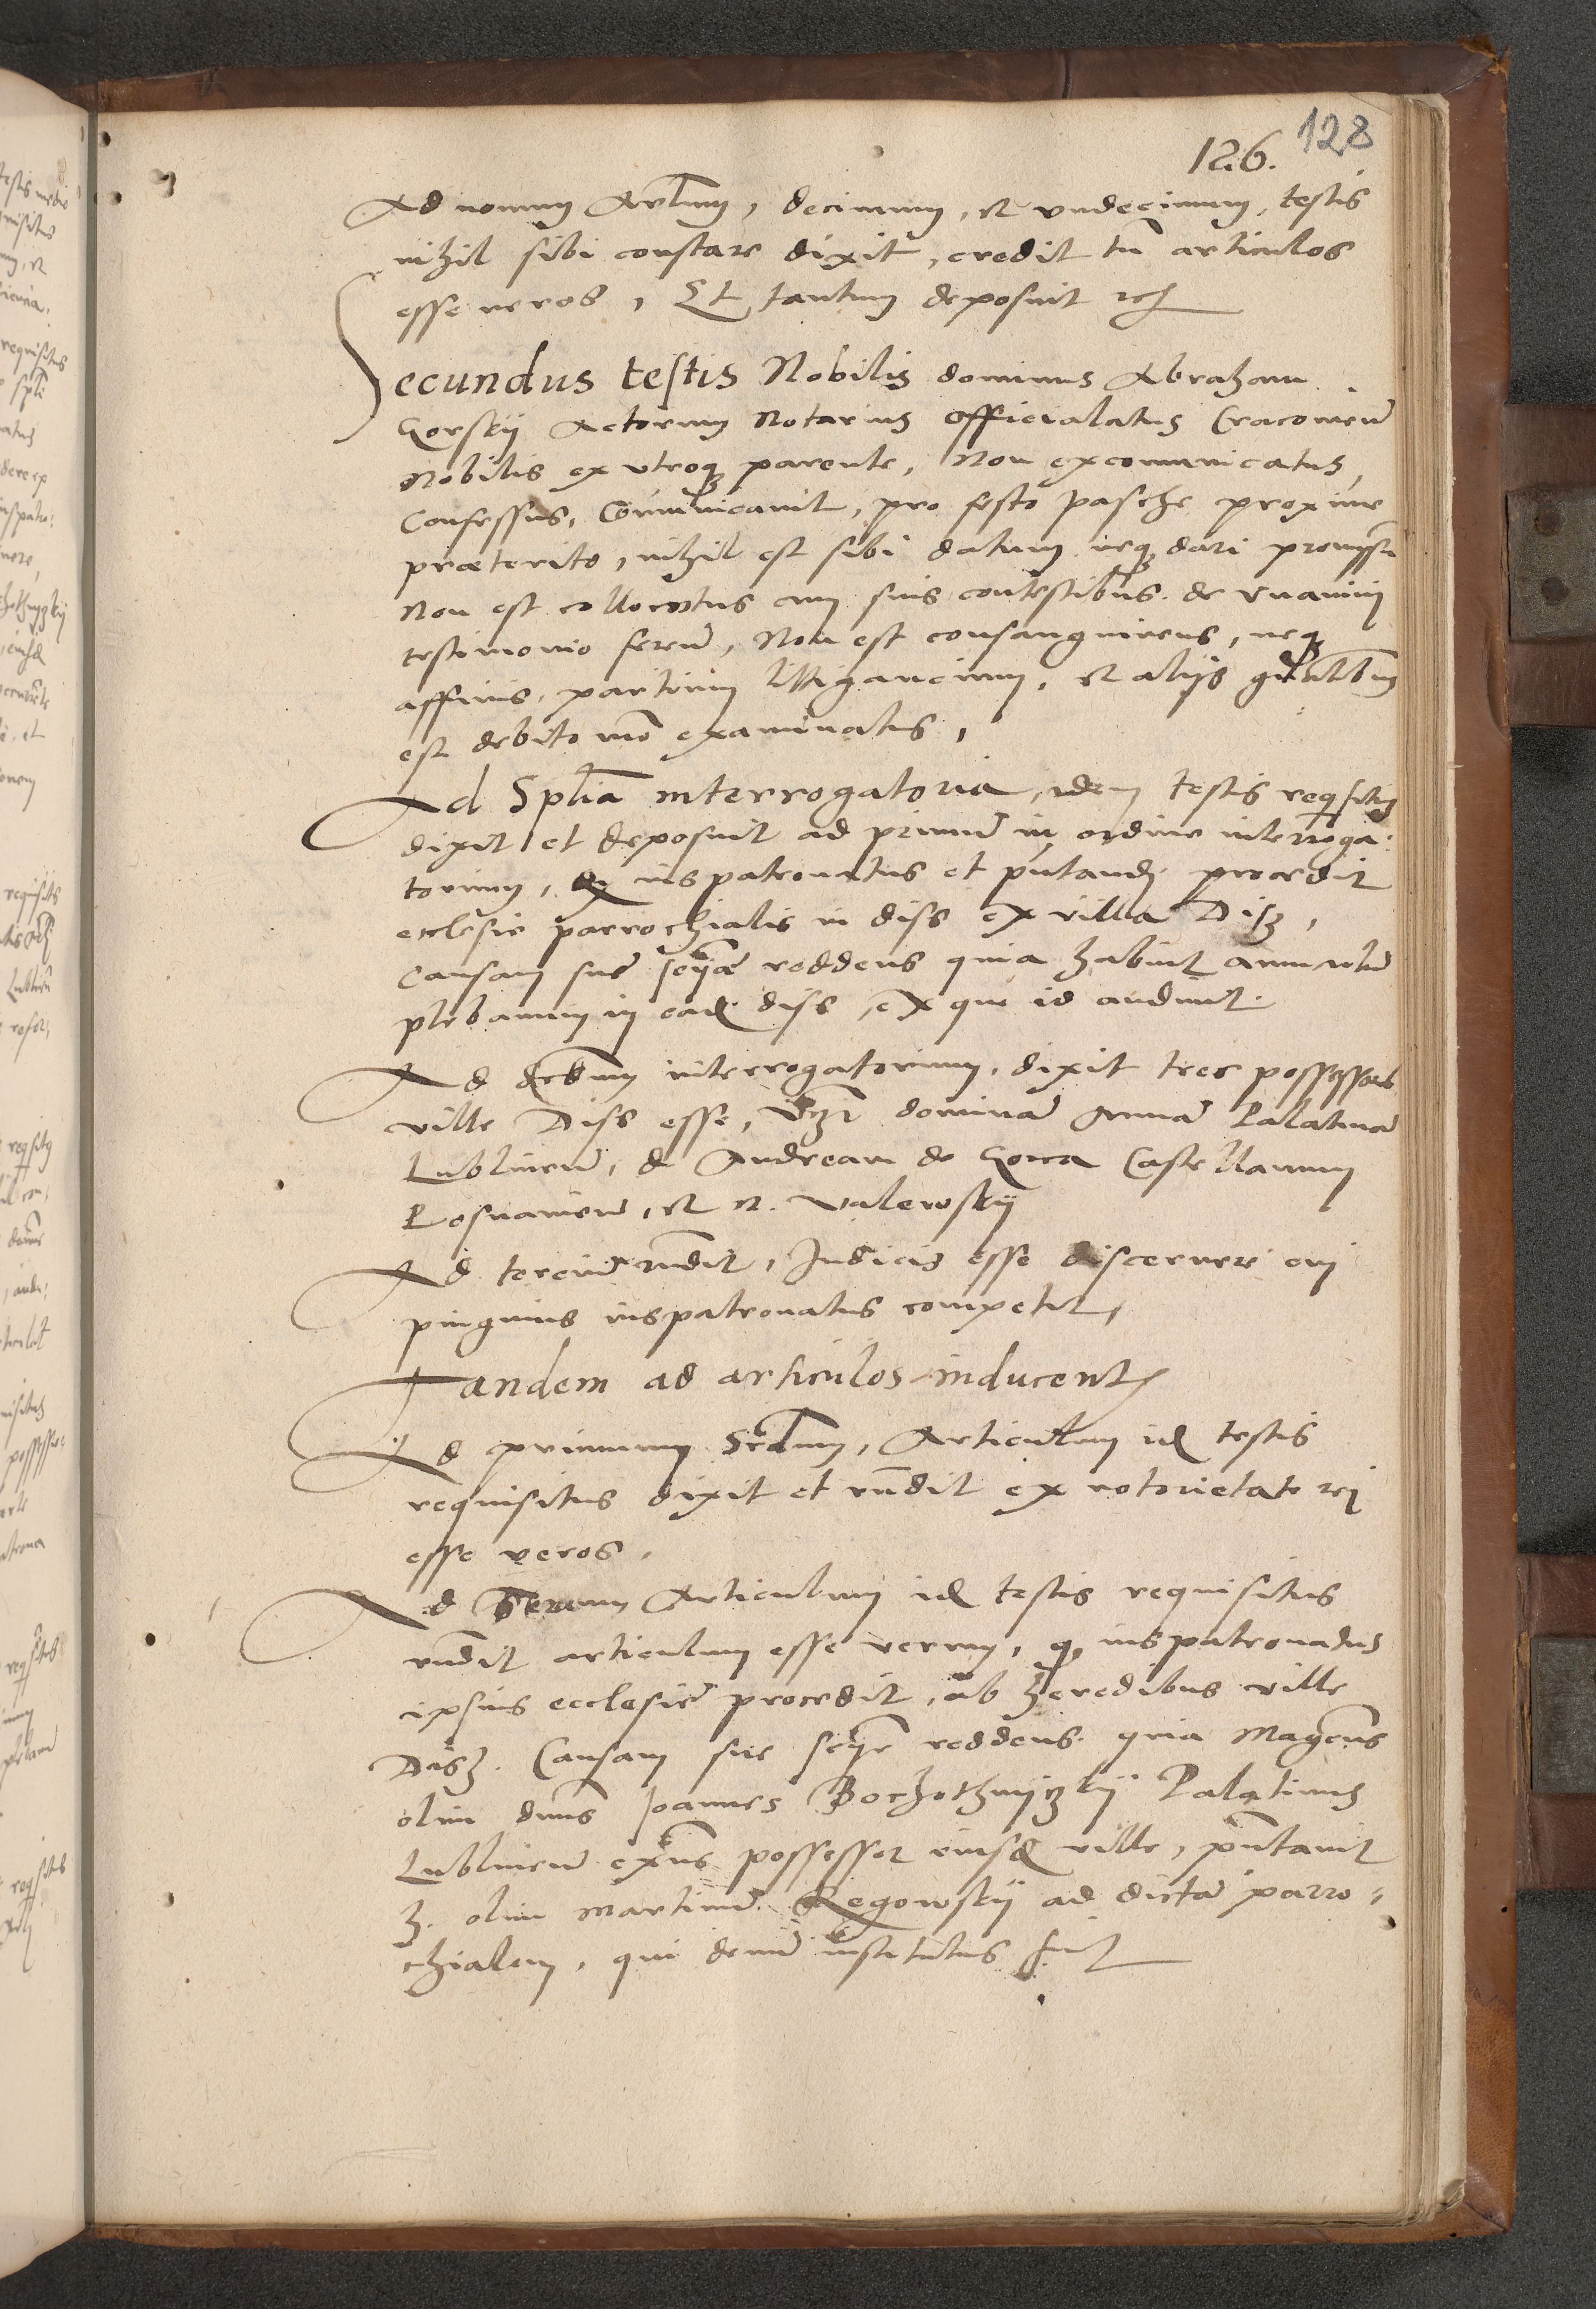 128
126.
Ad nonum Artlum, decimum, et vndecimum, testis
nihil sibi constare dixit, credit tn articulos
esse veros, Et tantum deposuit etc
Secundus testis Nobilis dominus Abraham
Gorskij Actorum Notarius officialatus Cracovien
Nobilis ex vtroq parente, Non excomunicatus,
Confessus, Comunicavit, pro festo pasche proxime
præterito, nihil est sibi datum neq dari promissu
Non est collocutus cum suis contestibus de vnanimi
testimonio feren, Non est consanguineus, neq
affinis partium littigancium, et alijs gnalibus
est debito mo examinatus,
Ad Splia interrogatoria, idem testis reqsitus
dixit et deposuit ad primu in ordine interroga:
torium, iuspatronatus et pntandj procedit
ecclesie parrochialis in diss ex villa Disz,
Causam sue scije reddens quia habuit
plebanum in ead diss, ex quo id audiuit.
Ad scdum interrogatorium, dixit tres possessores
ville Diss esse, vzt dominam Annam Palatinam
Lublinen, d Andream de Gorca Castellanum
Posnanien, et n. Valewskij
Ad terciu rndit, Judicis esse discernere cui
pinguius iuspatronatus competit,
Tandem ad articulos inducent
Ad primum Scdum, Articulum id testis
requisitus dixit et rndit ex notorietate rej
esse veros.
Ad Articulum id testis requisitus
rndit articulum esse verum, q iuspatronatus
ipsius ecclesie procedit, ab heredibus ville
Disz. Causam sue scije reddens quia Magcus
olim dnus Joannes Bochothnijczkij Palatinus
Lublinen exns possessor eiusd ville, pntauit
h. olim Martinu Regowskij ad dicta parro-
chialem, qui demu institutus fuit